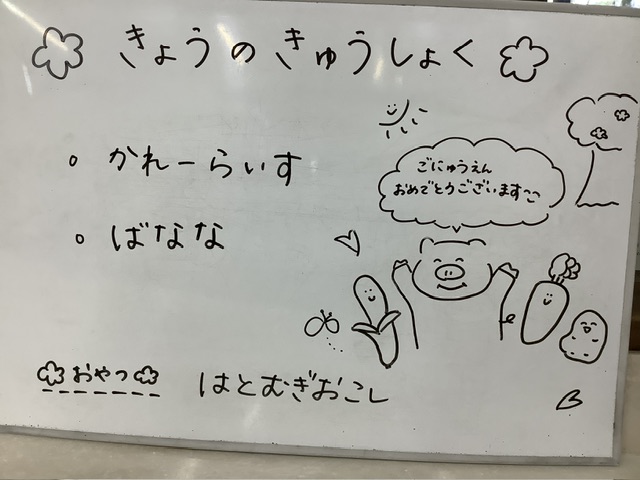 きょうのきゅうしょく
かれーらいす
ばなな
ごにゅうえん
おめでとうございます
おやつ
はとむぎおこし